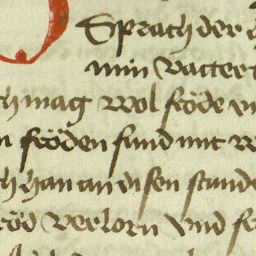 Sprach der
min vatter
h mag wol fröde vn
n fröden sund mit w
h han an disen stunde
röd verlorn vnd fr